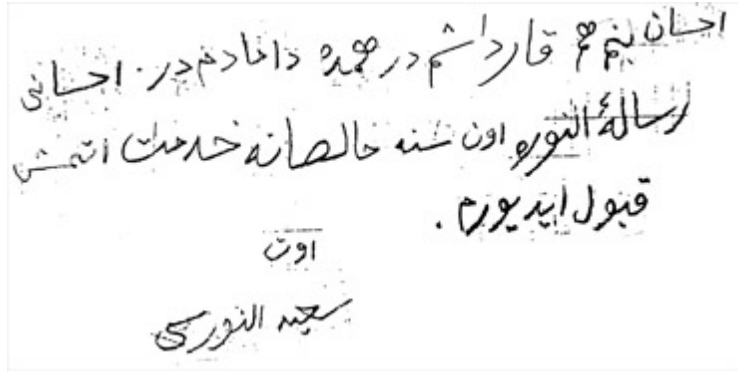 احسان بنم هم قارداشم در همده دامادم در. احسانی
رسالۀ النوره اون سنه خالصانه خدمت اتمش
قبول ایدیورم.
اوت
سعید النورسی